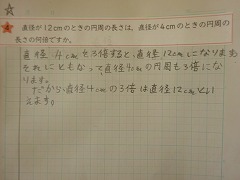 直径が12cmのときの円周の長さは、直径が4cmのときの円周の
長さの何倍ですか。
直径4cmを3倍すると、直径12cmになります
それにともなって直径4cmの円周も3倍にな
ります。
だから、直径4cmの3倍は直径12cmとい
えます。